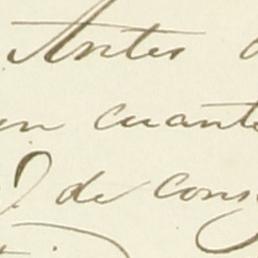 Antes
en cuanto
de cons